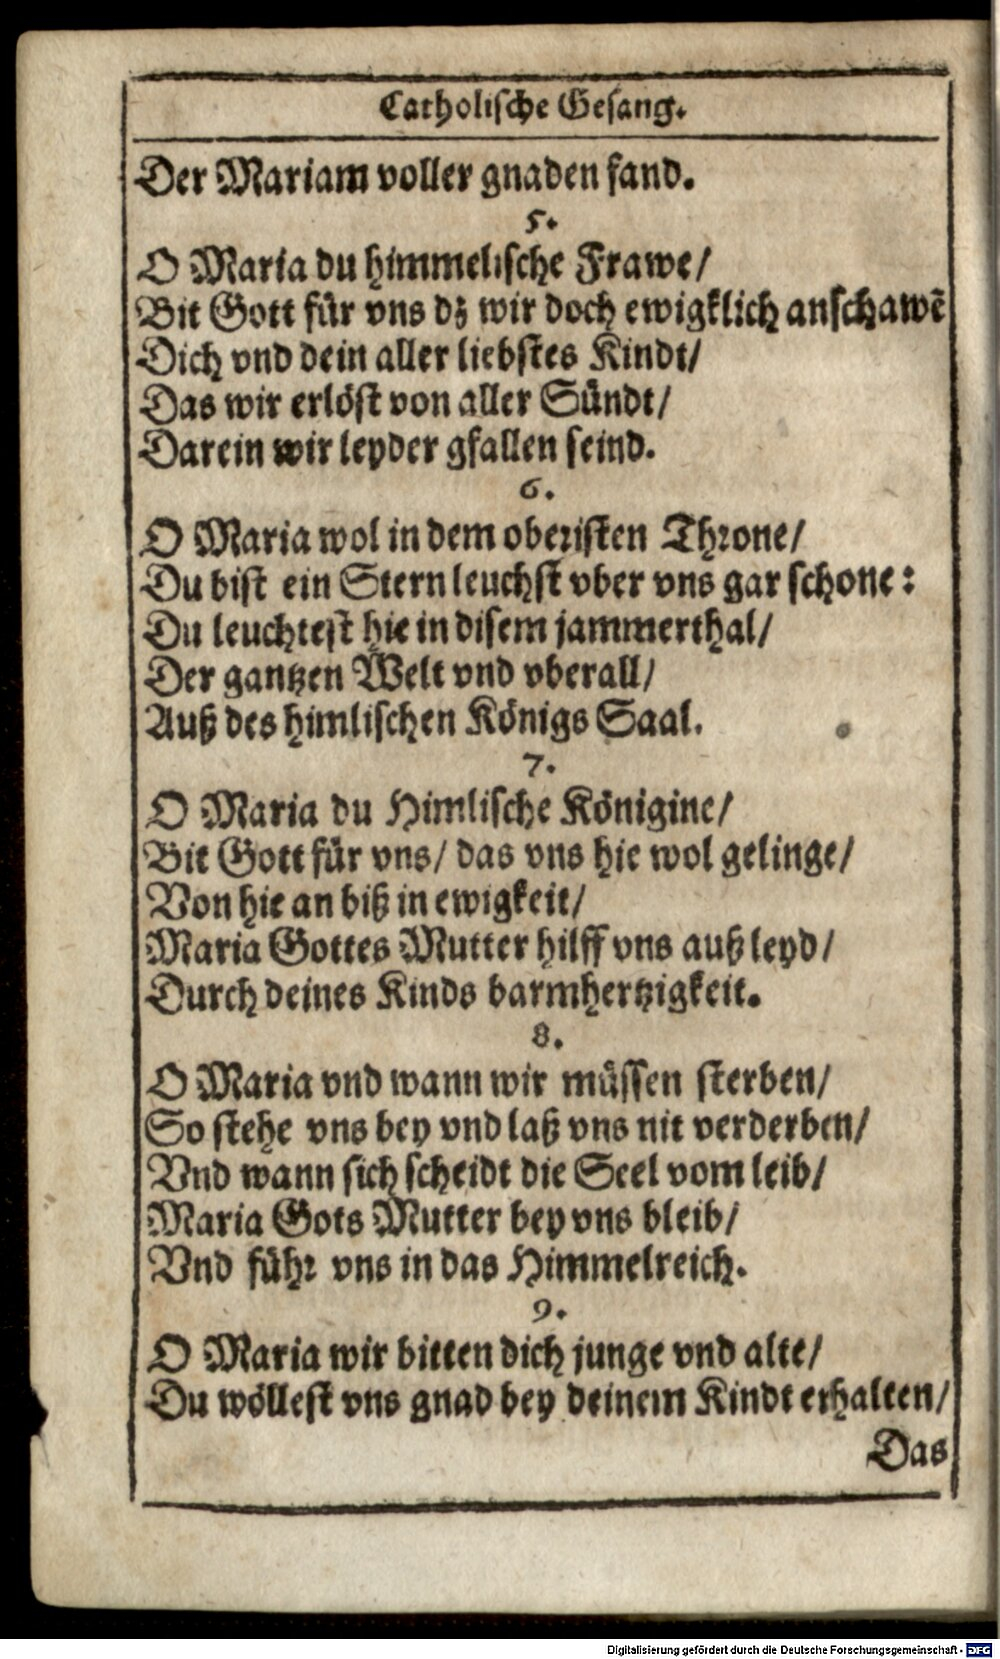 Catholische Gesang.
Der Mariam voller gnaden fand.
5.
O Maria du himmelische Frawe/
Bit Gott für vns dz wir doch ewigklich anschawẽ
Dich vnd dein aller liebstes Kindt/
Das wir erlöst von aller Sündt/
Darein wir leyder gfallen seind.
6.
O Maria wol in dem oberisten Throne/
Du bist ein Stern leuchst vber vns gar schone:
Du leuchtest hie in disem jammerthal/
Der gantzen Welt vnd vberall/
Auß des himlischen Königs Saal.
7.
O Maria du Himlische Königine/
Bit Gott für vns/ das vns hie wol gelinge/
Von hie an biß in ewigkeit/
Maria Gottes Mutter hilff vns auß leyd/
Durch deines Kinds barmhertzigkeit.
8.
O Maria vnd wann wir müssen sterben/
So stehe vns bey vnd laß vns nit verderben/
Vnd wann sich scheidt die Seel vom leib/
Maria Gots Mutter bey vns bleib/
Vnd führ vns in das Himmelreich.
9.
O Maria wir bitten dich junge vnd alte/
Du wöllest vns gnad bey deinem Kindt erhalten/
Das
Digitalisierung gefördert durch die Deutsche Forschungsgemeinschaft - DFG